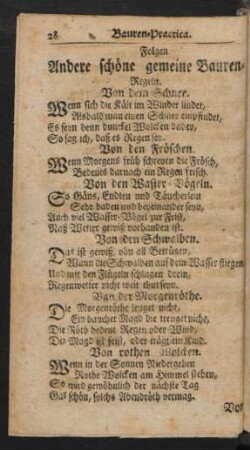 28 Bauren-Practica.
Folgen
Andere schöne gemeine Bauren-
Regeln.
Von dem Schnee.
Wenn sich die Kält im Winder lindet,
Alsbald man einen Schnee empfindet,
Es seyn denn dunckel Wolcken dabey,
So sag ich, daß es Regen sey.
Von den Fröschen.
Wenn Morgens früh schreyen die Frösch,
Bedeut darnach ein Regen frisch.
Von den Wasser-Vögeln.
So Gäns, Endten und Täucherlein
Sehr baden und beyeinander seyn,
Auch viel Wasser-Vögel zur Frist,
Naß Wetter gewiß vorhanden ist.
Von den Schwalben.
Das ist gewiß, ohn all Betrügen,
Wann die Schwalben auf dem Wasser fliegen
Und mit den Flügeln schlagen drein,
Regenwetter nicht weit thut seyn.
Von der Morgenröthe.
Die Morgenröthe leuget nicht,
Ein bauchet Magd die treuget nicht,
Die Röth bedeut Regen oder Wind,
Die Magd ist feist, oder trägt ein Kind.
Von rothen Wolcken.
Wenn in der Sonnen Niedergehen
Rothe Wolcken am Himmel stehen,
So wird gewöhnlich der nächste Tag
Gar schön, solchs Abendröth vermag.
Von